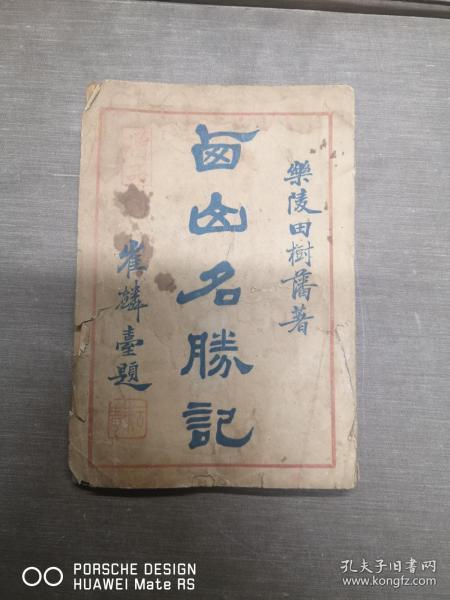 樂陵田樹藩著
西山名勝記
崔麟臺題
PORSCHE DESIGN
HUAWEI Mate RS
孔夫子旧书网
www.kongfz.com